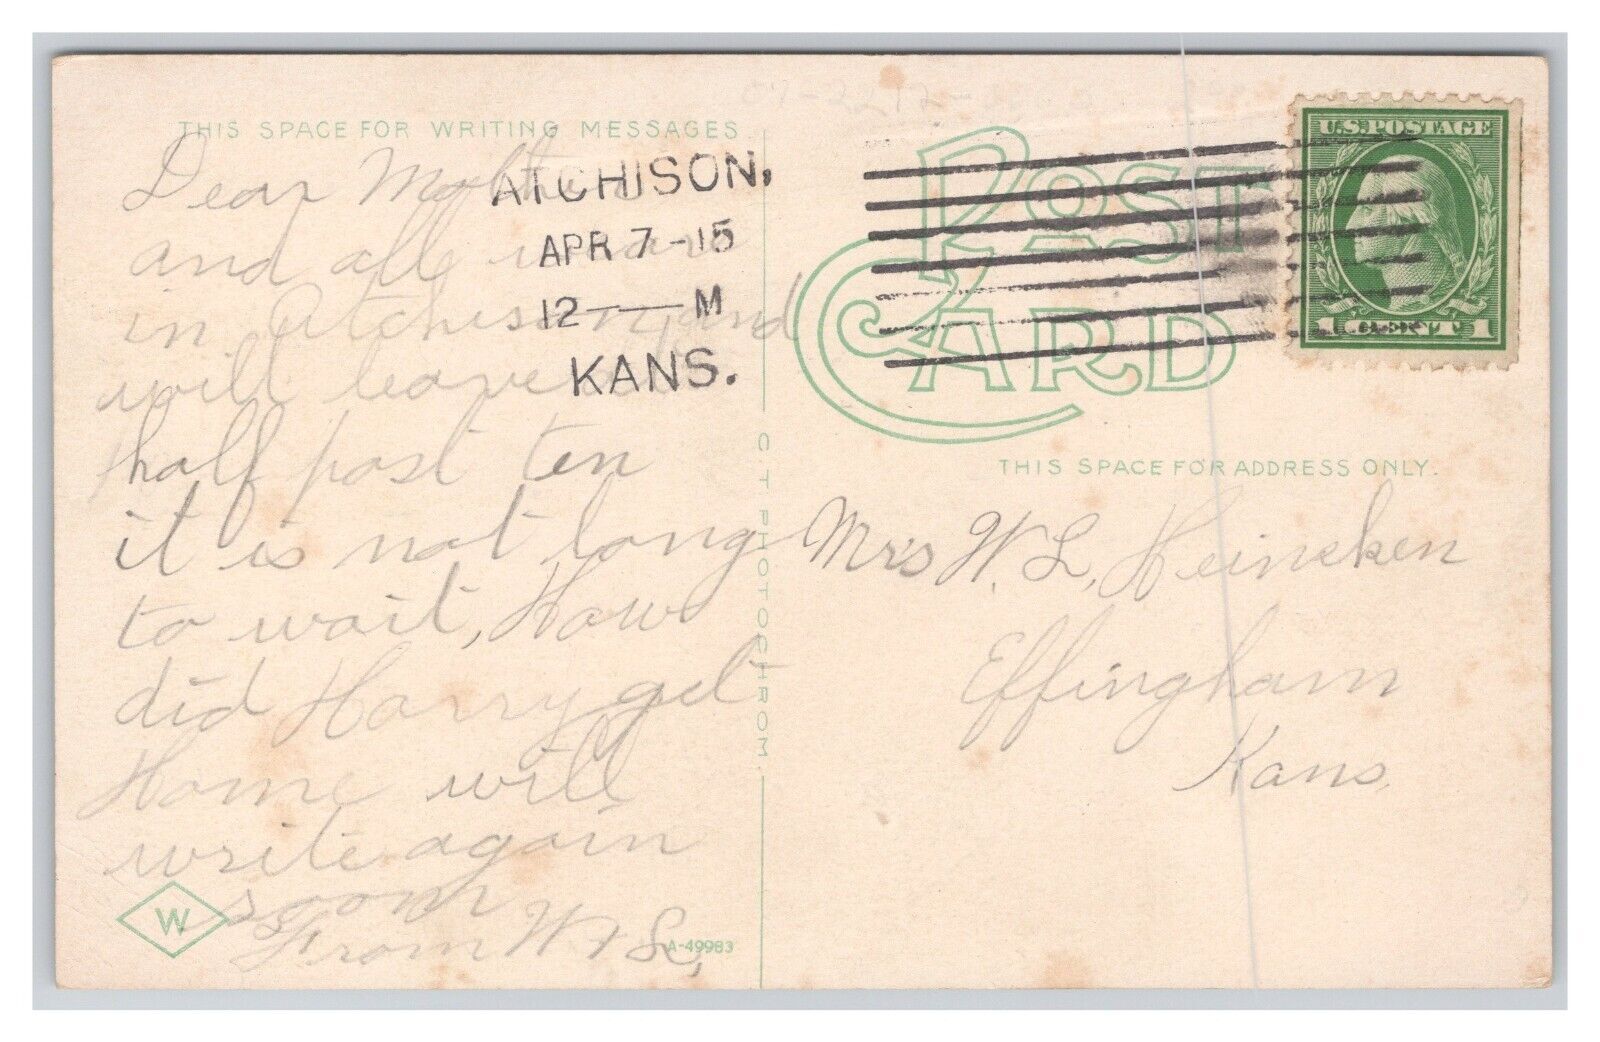 THIS SPACE FOR WRITING MESSAGES
Dear
and all we are
in Atchison and
will leave
half past ten
it is not long
to wait, How
did Harry get
Home will
write again
soon
From W + L,
ATCHISON,
APR 7-15
12—M
KANS.
POST CARD
U.S. POSTAGE
1 CENT 1
THIS SPACE FOR ADDRESS ONLY.
Mrs W. L, Heineken
Effingham
Kans.
C T PHOTOCHROM.
W
A-49983